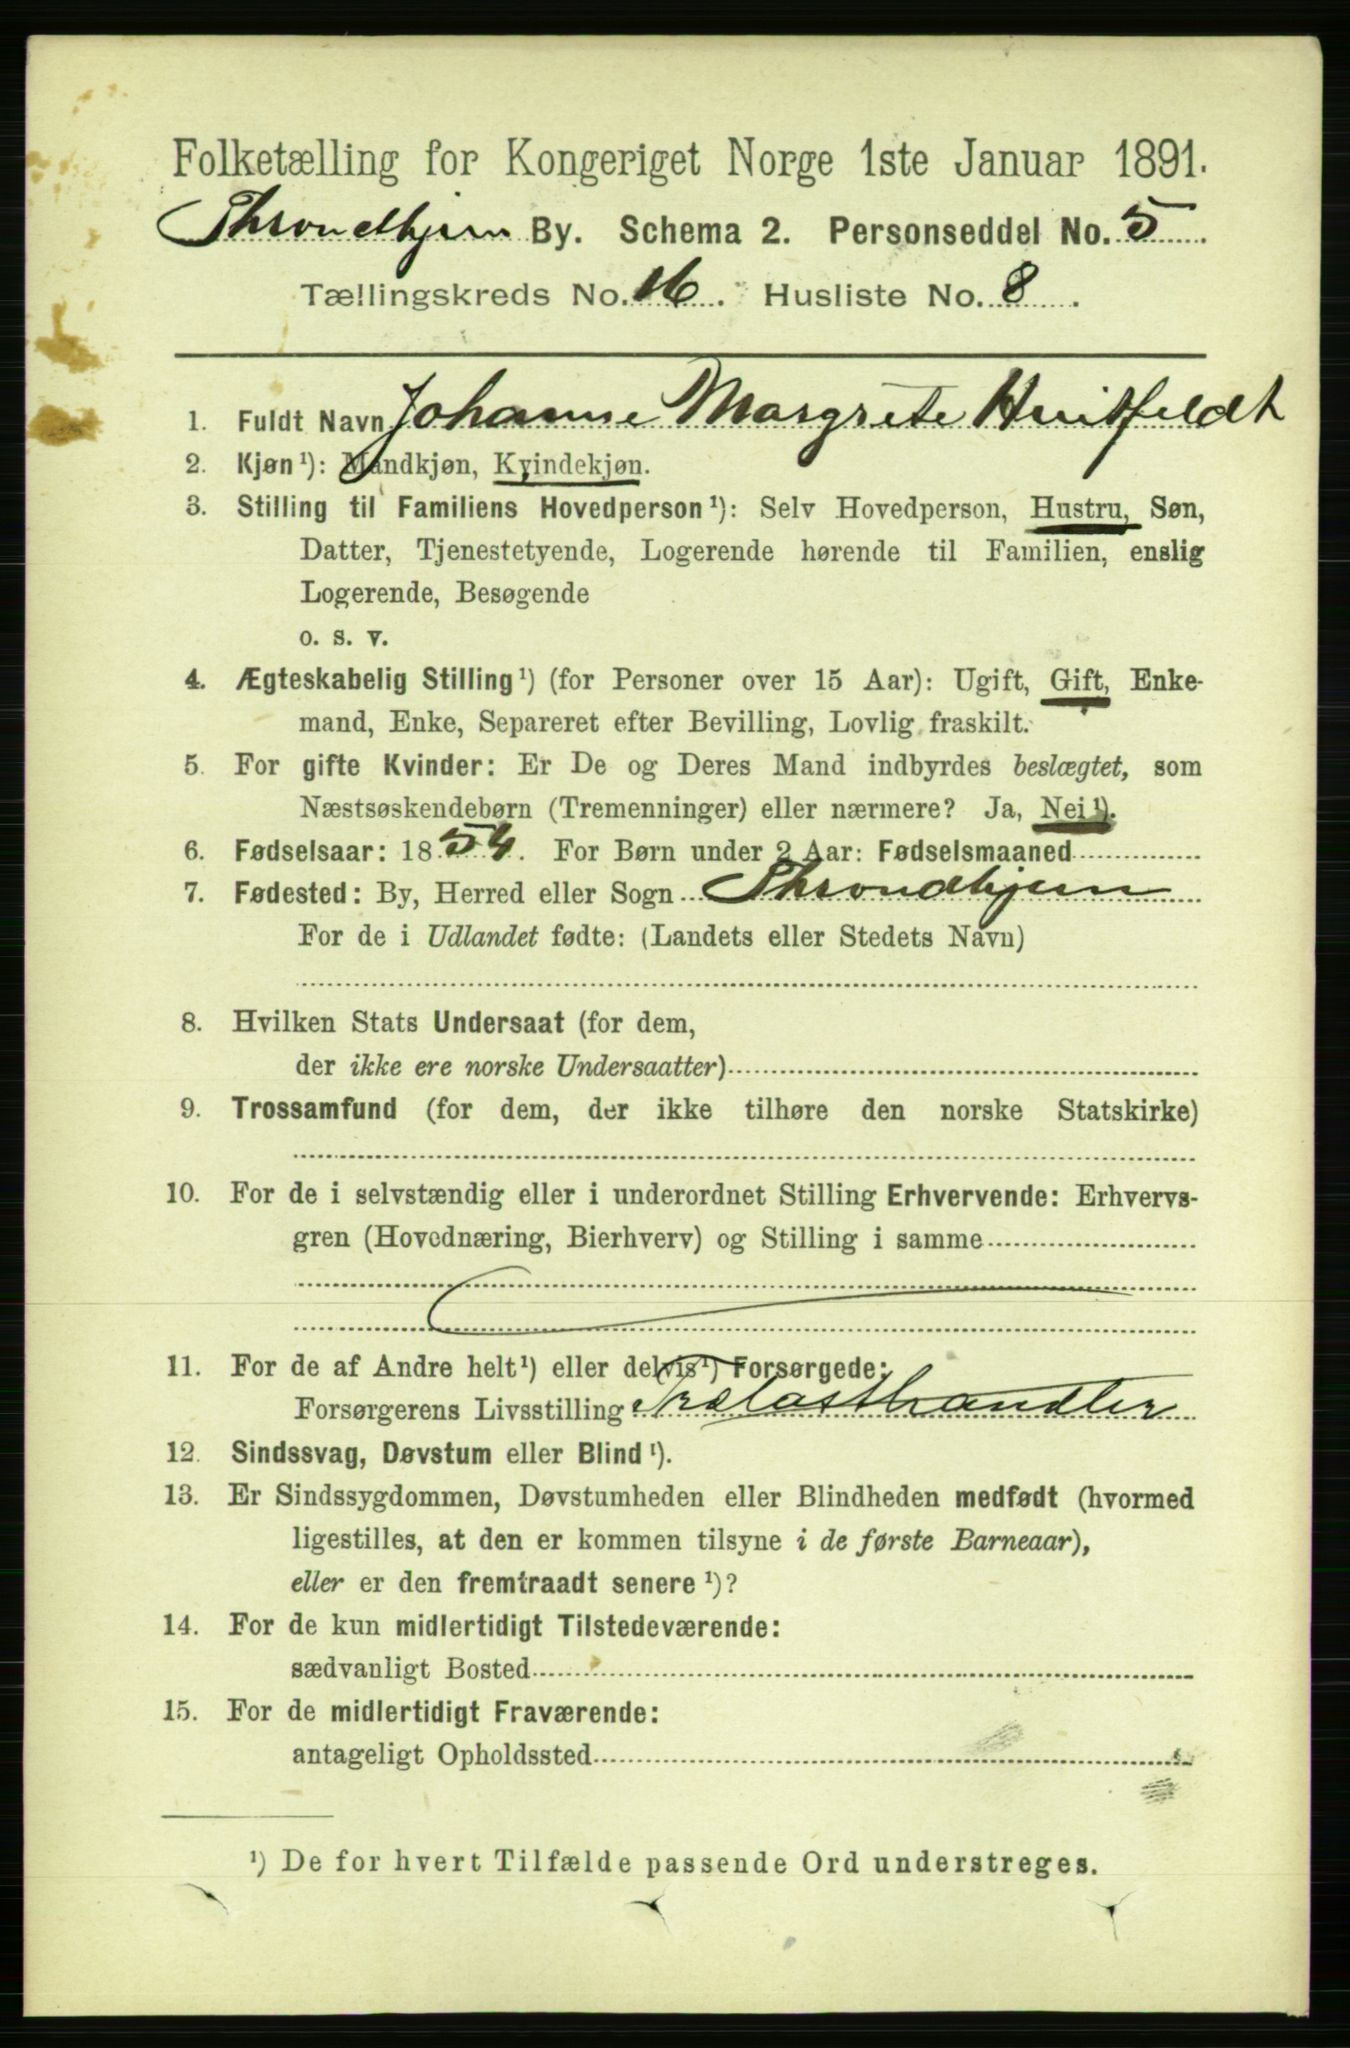 Folketælling for Kongeriget Norge 1ste Januar 1891.
Throndhjem By. Schema 2. Personseddel No. 5
Tællingskreds No. 16. Husliste No. 8.
1. Fuldt Navn Johanne Margrete Huitfeldt
2. Kjøn¹): Mandkjøn, Kvindekjøn.
3. Stilling til Familiens Hovedperson¹): Selv Hovedperson, Hustru, Søn,
Datter, Tjenestetyende, Logerende hørende til Familien, enslig
Logerende, Besøgende
o. s. v.
4. Ægteskabelig Stilling¹) (for Personer over 15 Aar): Ugift, Gift, Enke-
mand, Enke, Separeret efter Bevilling, Lovlig fraskilt.
5. For gifte Kvinder: Er De og Deres Mand indbyrdes beslægtet, som
Næstsøskendebørn (Tremenninger) eller nærmere? Ja, Nei¹).
6. Fødselsaar: 1854. For Børn under 2 Aar: Fødselsmaaned
7. Fødested: By, Herred eller Sogn Throndhjem
For de i Udlandet fødte: (Landets eller Stedets Navn)
8. Hvilken Stats Undersaat (for dem,
der ikke ere norske Undersaatter)
9. Trossamfund (for dem, der ikke tilhøre den norske Statskirke)
10. For de i selvstændig eller i underordnet Stilling Erhvervende: Erhvervs-
gren (Hovednæring, Bierhverv) og Stilling i samme
11. For de af Andre helt¹) eller delvis¹) Forsørgede:
Forsørgerens Livsstilling Trælasthandler
12. Sindssvag, Døvstum eller Blind¹).
13. Er Sindssygdommen, Døvstumheden eller Blindheden medfødt (hvormed
ligestilles, at den er kommen tilsyne i de første Barneaar),
eller er den fremtraadt senere¹)?
14. For de kun midlertidigt Tilstedeværende:
sædvanligt Bosted
15. For de midlertidigt Fraværende:
antageligt Opholdssted
¹) De for hvert Tilfælde passende Ord understreges.